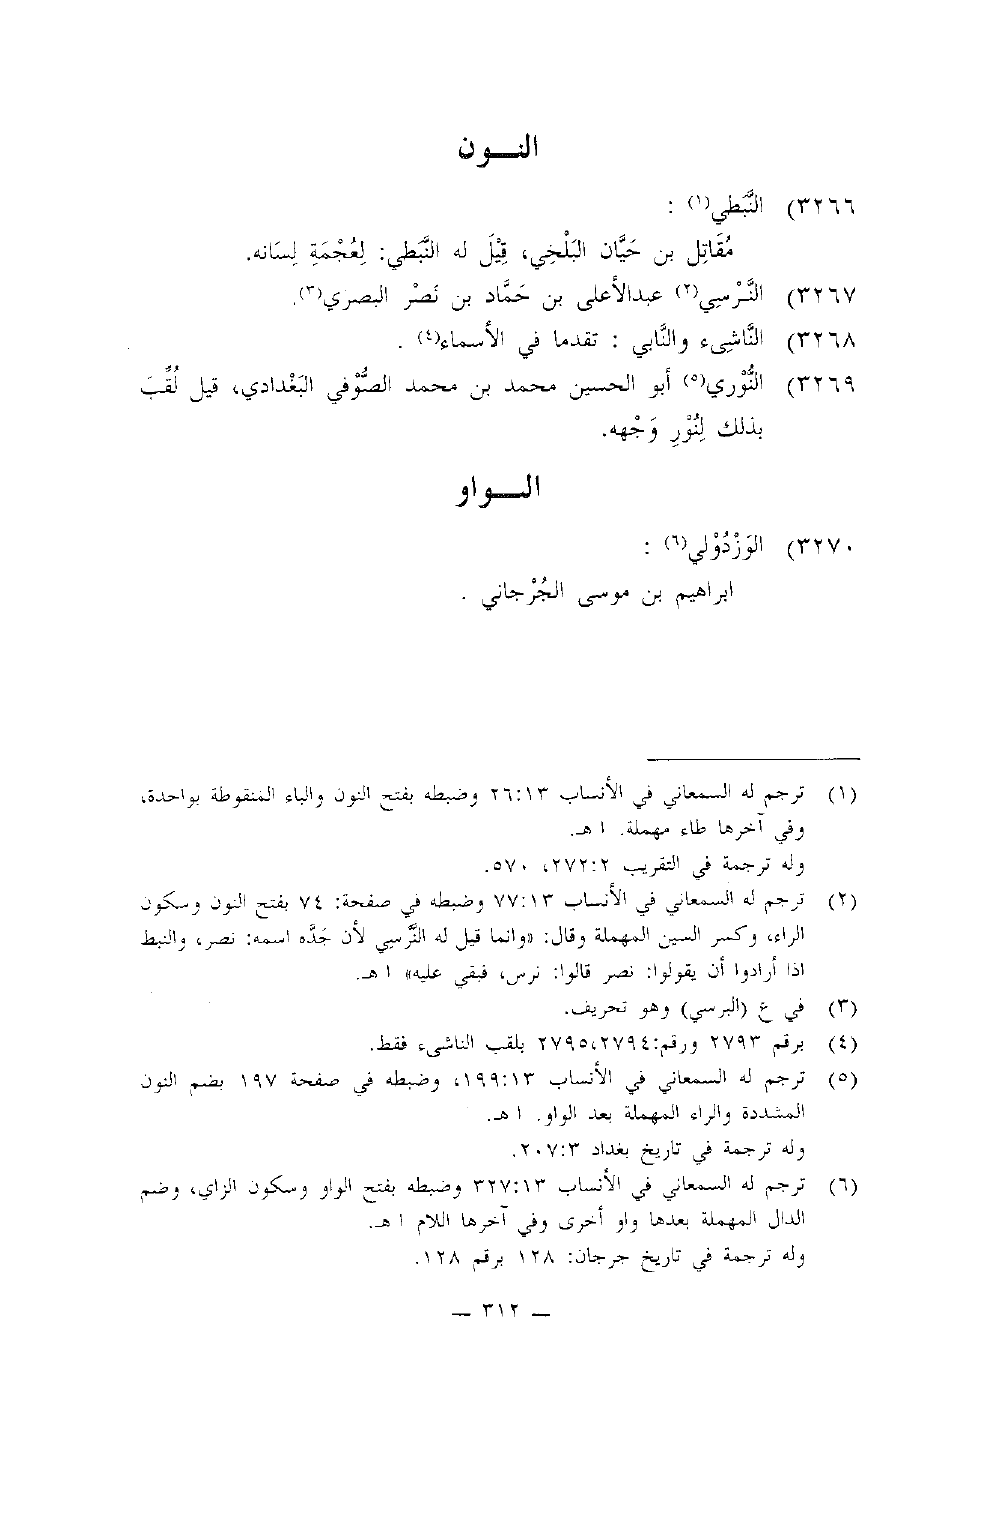 النـــون
٣٢٦٦) النَّبَطي(١) :
مُقَاتِل بن حَيَّان البَلْخِي، قِيْلَ له النَّبَطي: لِعُجْمَةِ لِسَانه.
٣٢٦٧) النَّرْسِي(٢) عبدالأعلى بن حَمَّاد بن نَصْر البصري(٣).
٣٢٦٨) النَّاشِىء والنَّابي : تقدما في الأسماء(٤) .
٣٢٦٩) النُّوْري(٥) أبو الحسين محمد بن محمد الصُّوْفي البَغْدادي، قيل لُقِّبَ
بذلك لِنُوْرِ وَجْهه.
الـــواو
٣٢٧٠) الوَزْدُوْلي(٦) :
ابراهيم بن موسى الجُرْجاني .
(١) ترجم له السمعاني في الأنساب ٢٦:١٣ وضبطه بفتح النون والباء المنقوطة بواحدة،
وفي آخرها طاء مهملة. ا هـ.
وله ترجمة في التقريب ٢٧٢:٢، ٥٧٠.
(٢) ترجم له السمعاني في الأنساب ٧٧:١٣ وضبطه في صفحة: ٧٤ بفتح النون وسكون
الراء، وكسر السين المهملة وقال: «وانما قيل له النَّرسي لأن جَدَّه اسمه: نصر، والنبط
اذا أرادوا أن يقولوا: نصر قالوا: نرس، فبقي عليه» ا هـ.
(٣) في ع (البرسي) وهو تحريف.
(٤) برقم ٢٧٩٣ ورقم:٢٧٩٥،٢٧٩٤ بلقب الناشىء فقط.
(٥) ترجم له السمعاني في الأنساب ١٩٩:١٣، وضبطه في صفحة ١٩٧ بضم النون
المشددة والراء المهملة بعد الواو. ا هـ.
وله ترجمة في تاريخ بغداد ٢٠٧:٣.
(٦) ترجم له السمعاني في الأنساب ٣٢٧:١٣ وضبطه بفتح الواو وسكون الزاي، وضم
الدال المهملة بعدها واو أخرى وفي آخرها اللام ا هـ.
وله ترجمة في تاريخ جرجان: ١٢٨ برقم ١٢٨.
— ٣١٢ —